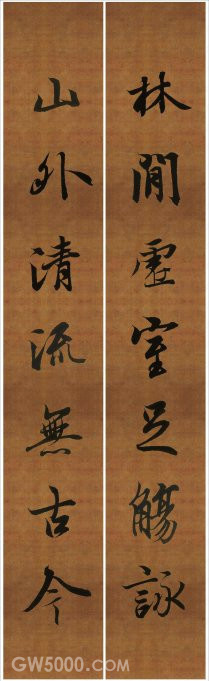 林間虛室足觴詠
山外清流無古今
GW5000.com